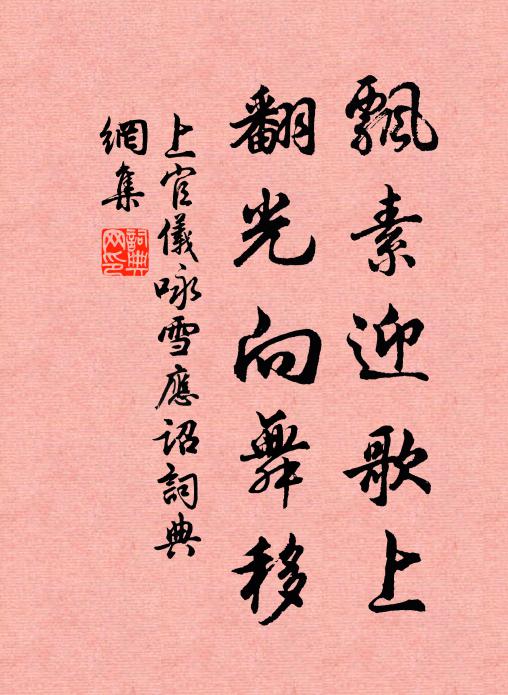 飄素迎歌上
翻光向舞移
上官儀咏雪應詔詞典
網集
詞典網印